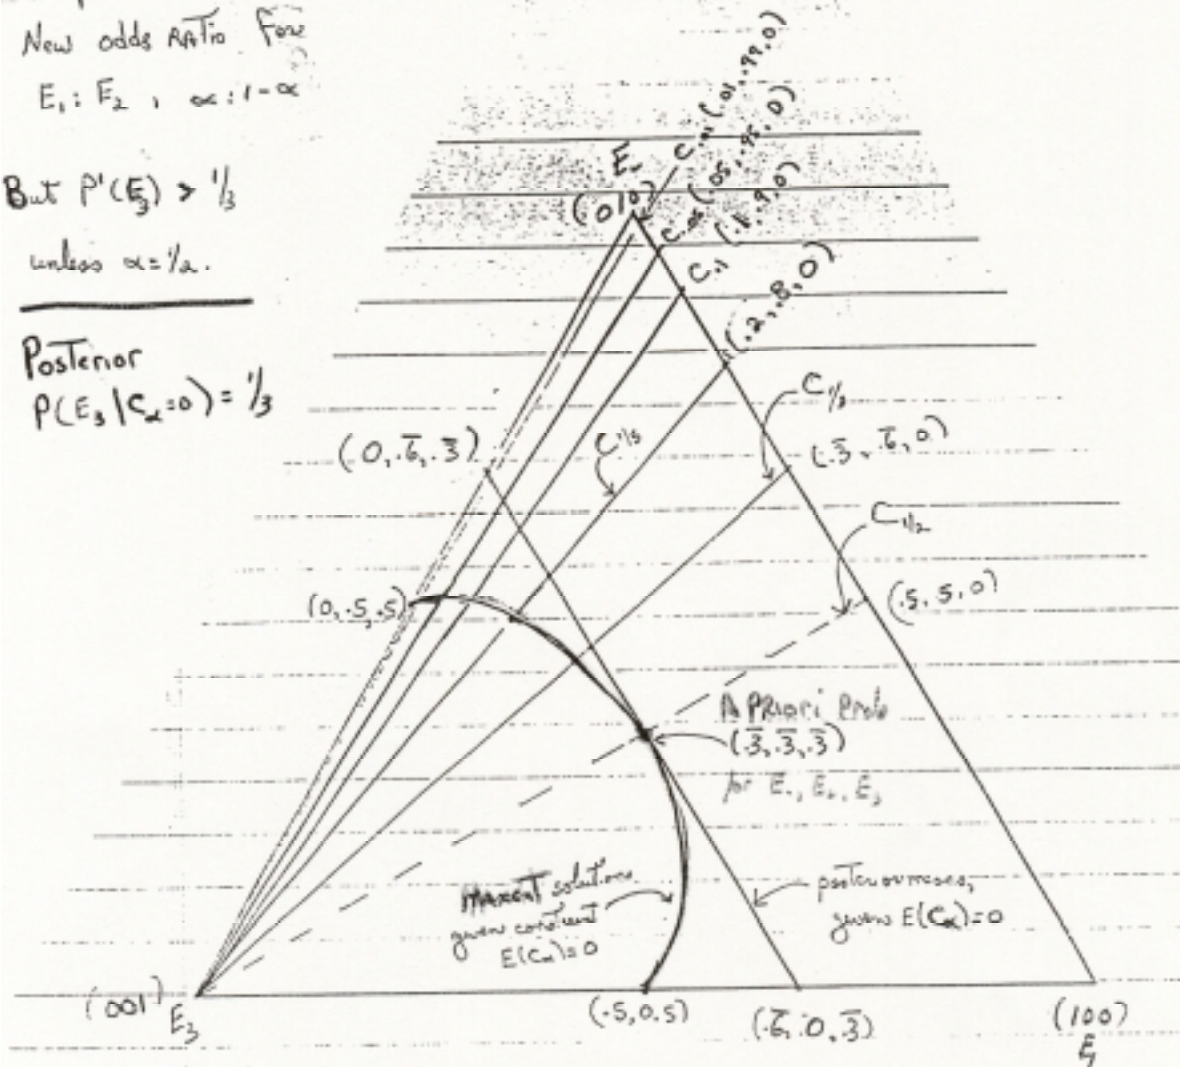 New odds Ratio For
E₁ : E₂ , α : 1-α
But P'(E₃) > 1/3
unless α = 1/2.
Posterior
P(E₃ | Cα = 0) = 1/3
(010)
C.01 (.01, .99, 0)
C.05 (.05, .95, 0)
C.1 (.1, .9, 0)
(.2, .8, 0)
C1/3
(.3̅, .6̅, 0)
(0, .6̅, .3̅)
C1/5
C1/2
(.5, .5, 0)
(0, .5, .5)
A PRiori Prob
(.3̅, .3̅, .3̅)
for E₁, E₂, E₃
MAXENT solutions
given constraint
E(Cα) = 0
given E(Cα) = 0
(001)
E₃
(.5, 0, .5)
(.6̅, 0, .3̅)
(100)
E₁